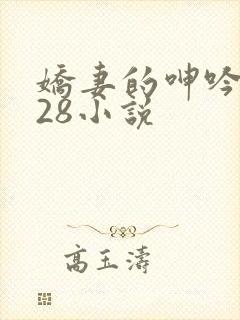 嬌妻的呻吟
28小說
高玉濤